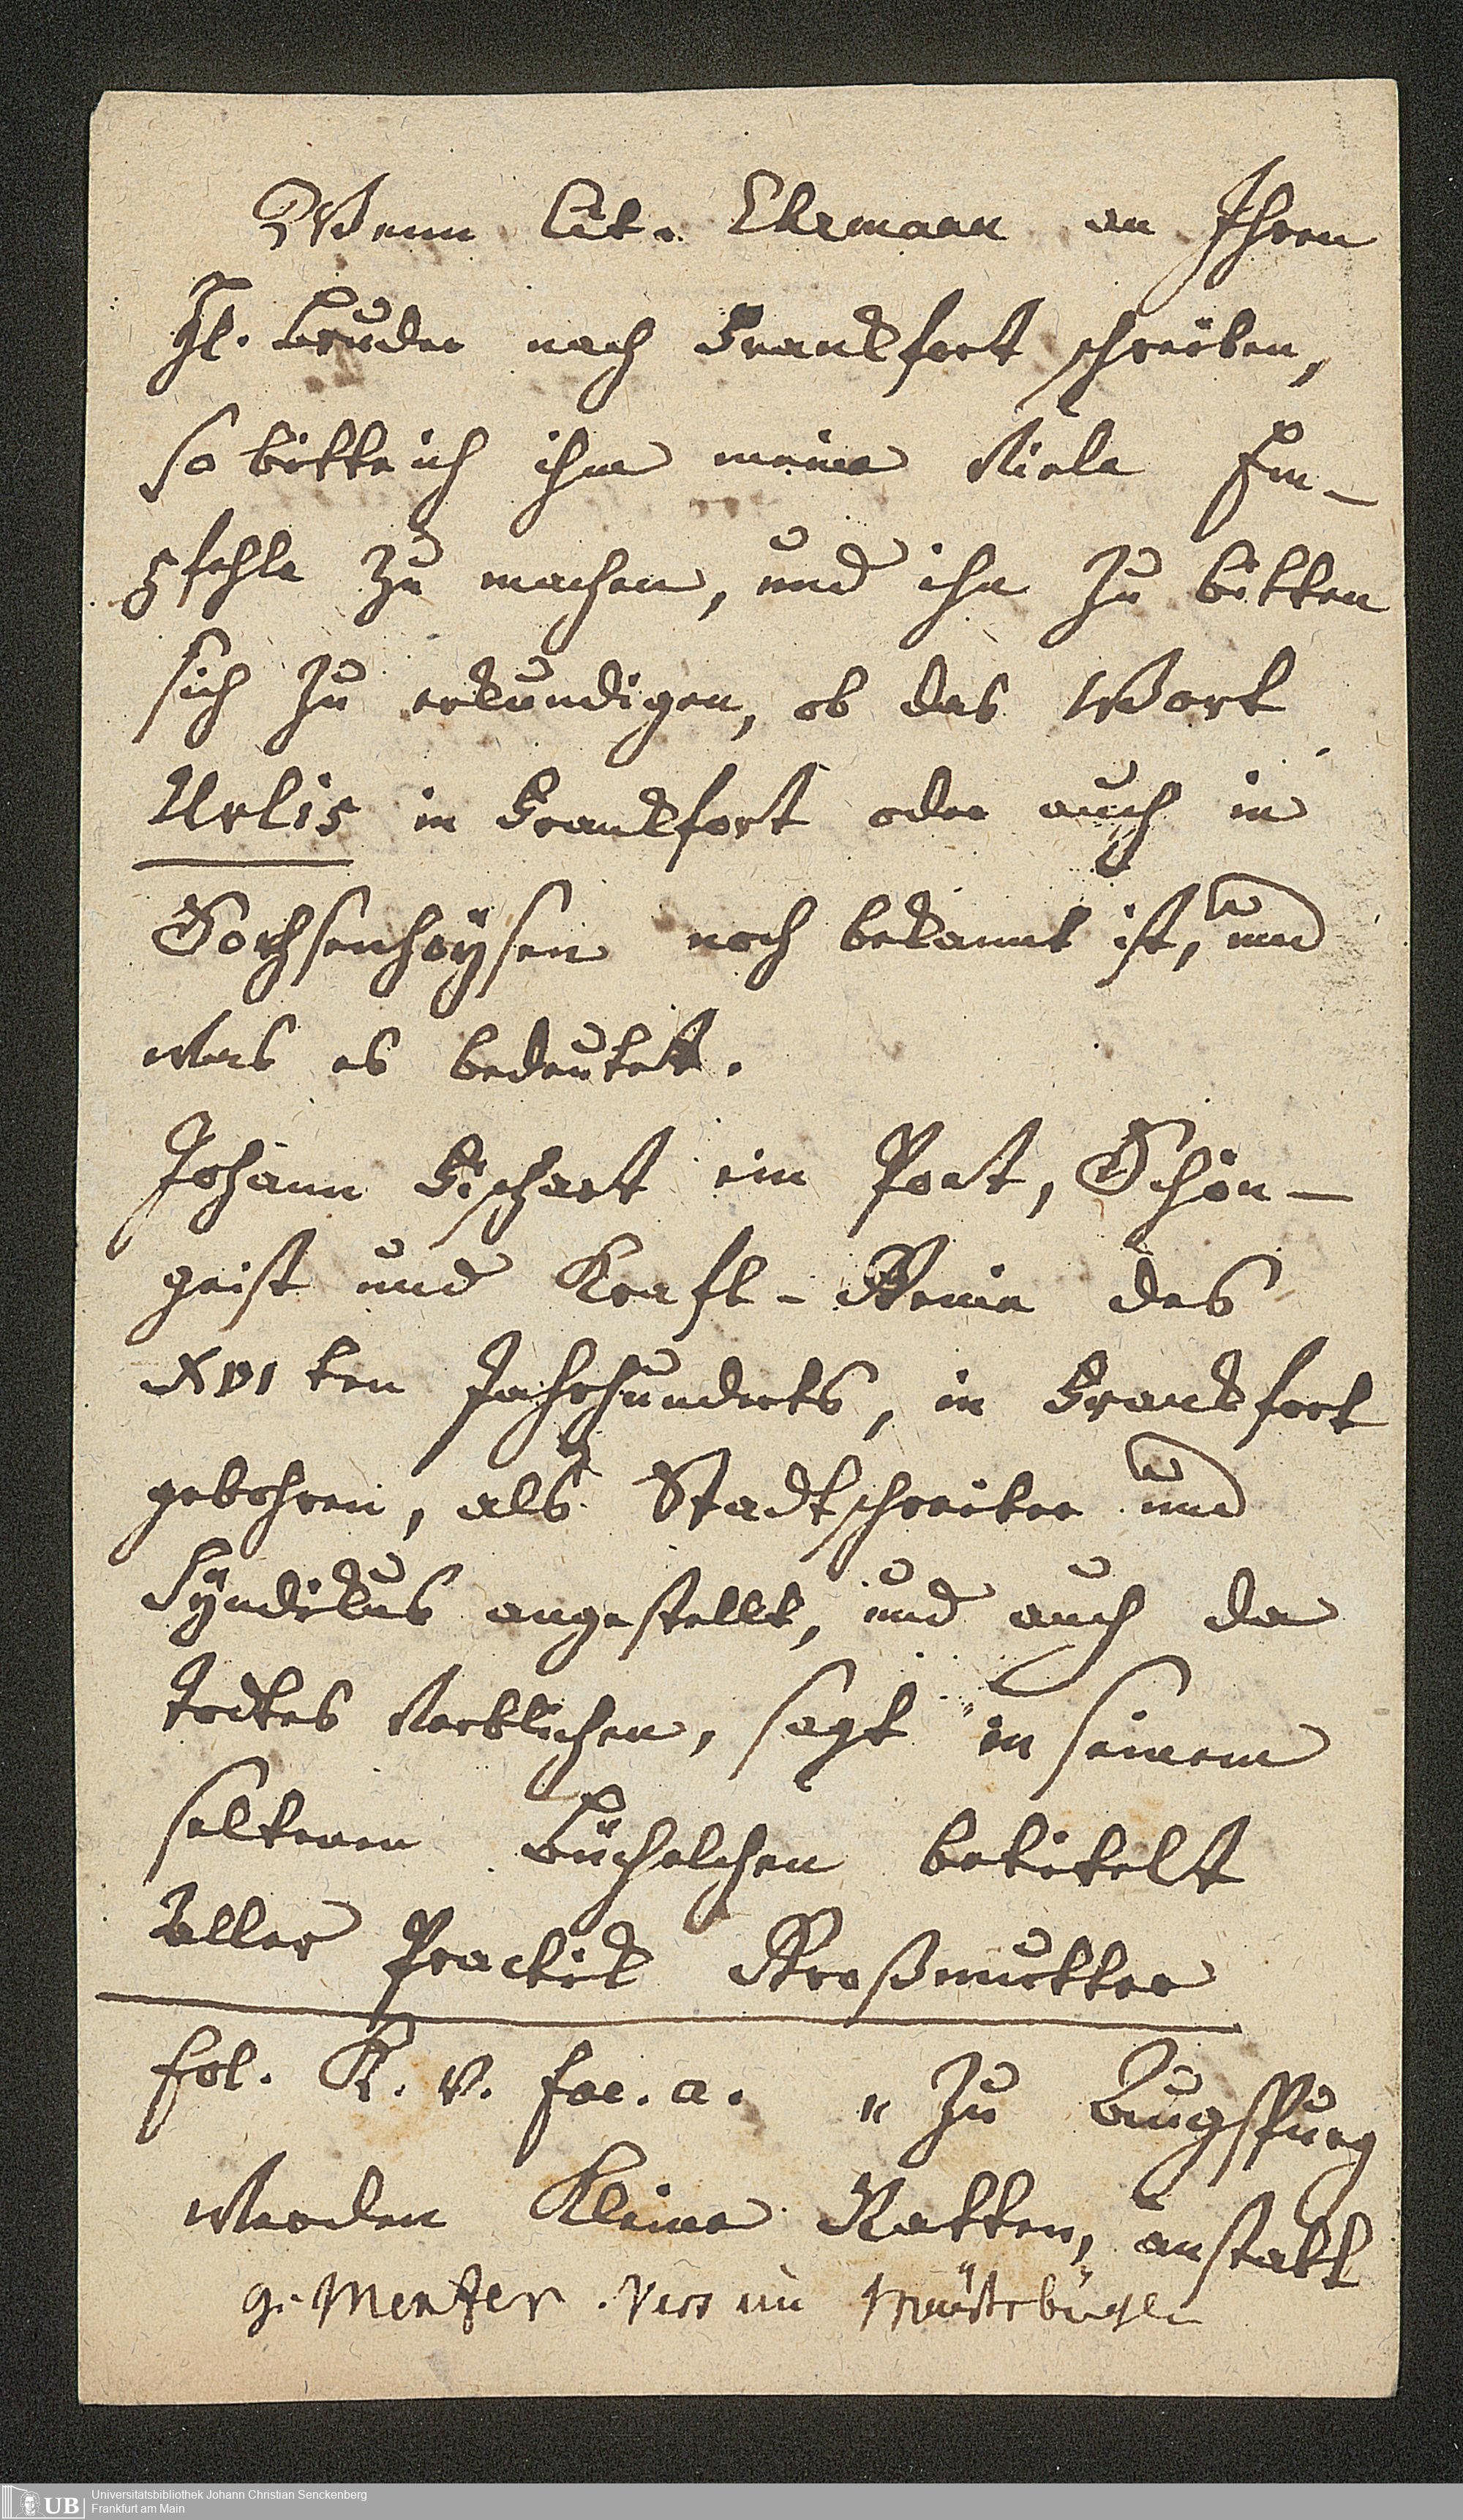 Wenn Cit. Ehrmann an Ihren
H. Bruder nach Frankfort schreiben,
so bitte ich ihm meine Viele Em-
pfehle zu machen, und ihn zu bitten
sich zu erkundigen, ob das Wort
Urlis in Frankfort oder auch in
Sachsenhaußen noch bekannt ist, und
was es bedeutet.
Johann Fischart ein Poet, Schön-
geist und Kraft-Genie des
XVI ten Jahrhunderts, in Frankfort
gebohren, als Stadtschreiber und
Syndikus angestellt, und auch da
Todtes Verblichen, sagt in seinem
seltenen Büchelchen betitelt
Aller Practick Großmutter
fol. K. v. fac. a. " zu Augspurg
werden Kleine Ratten, anstatt
g. Mentzer. im
Universitätsbibliothek Johann Christian Senckenberg
UB
Frankfurt am Main